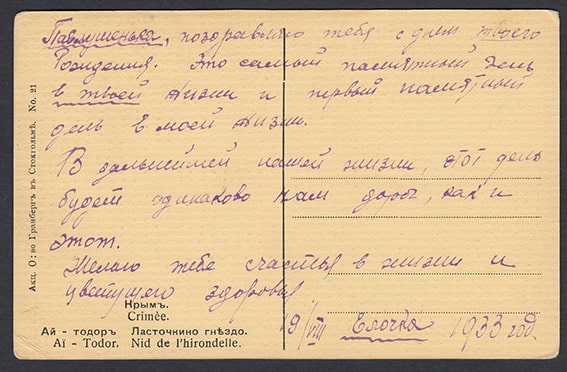 Павлушенька, поздравляю тебя с днем твоего
Рождения. Это самый памятный день
в твоей жизни и первый памятный
день в моей жизни.
В дальнейшей нашей жизни, этот день
будет одинаково нам дорог, как и
этот.
Желаю тебе счастья в жизни и
цветущего здоровья
19/VIII Елочка 1933 год.
Крымъ.
Crimée.
Ай - тодоръ Ласточкино гнѣздо.
Aï - Todor. Nid de l'hirondelle.
Акц. О: во Гранбергъ въ Стокгольмѣ. No. 21